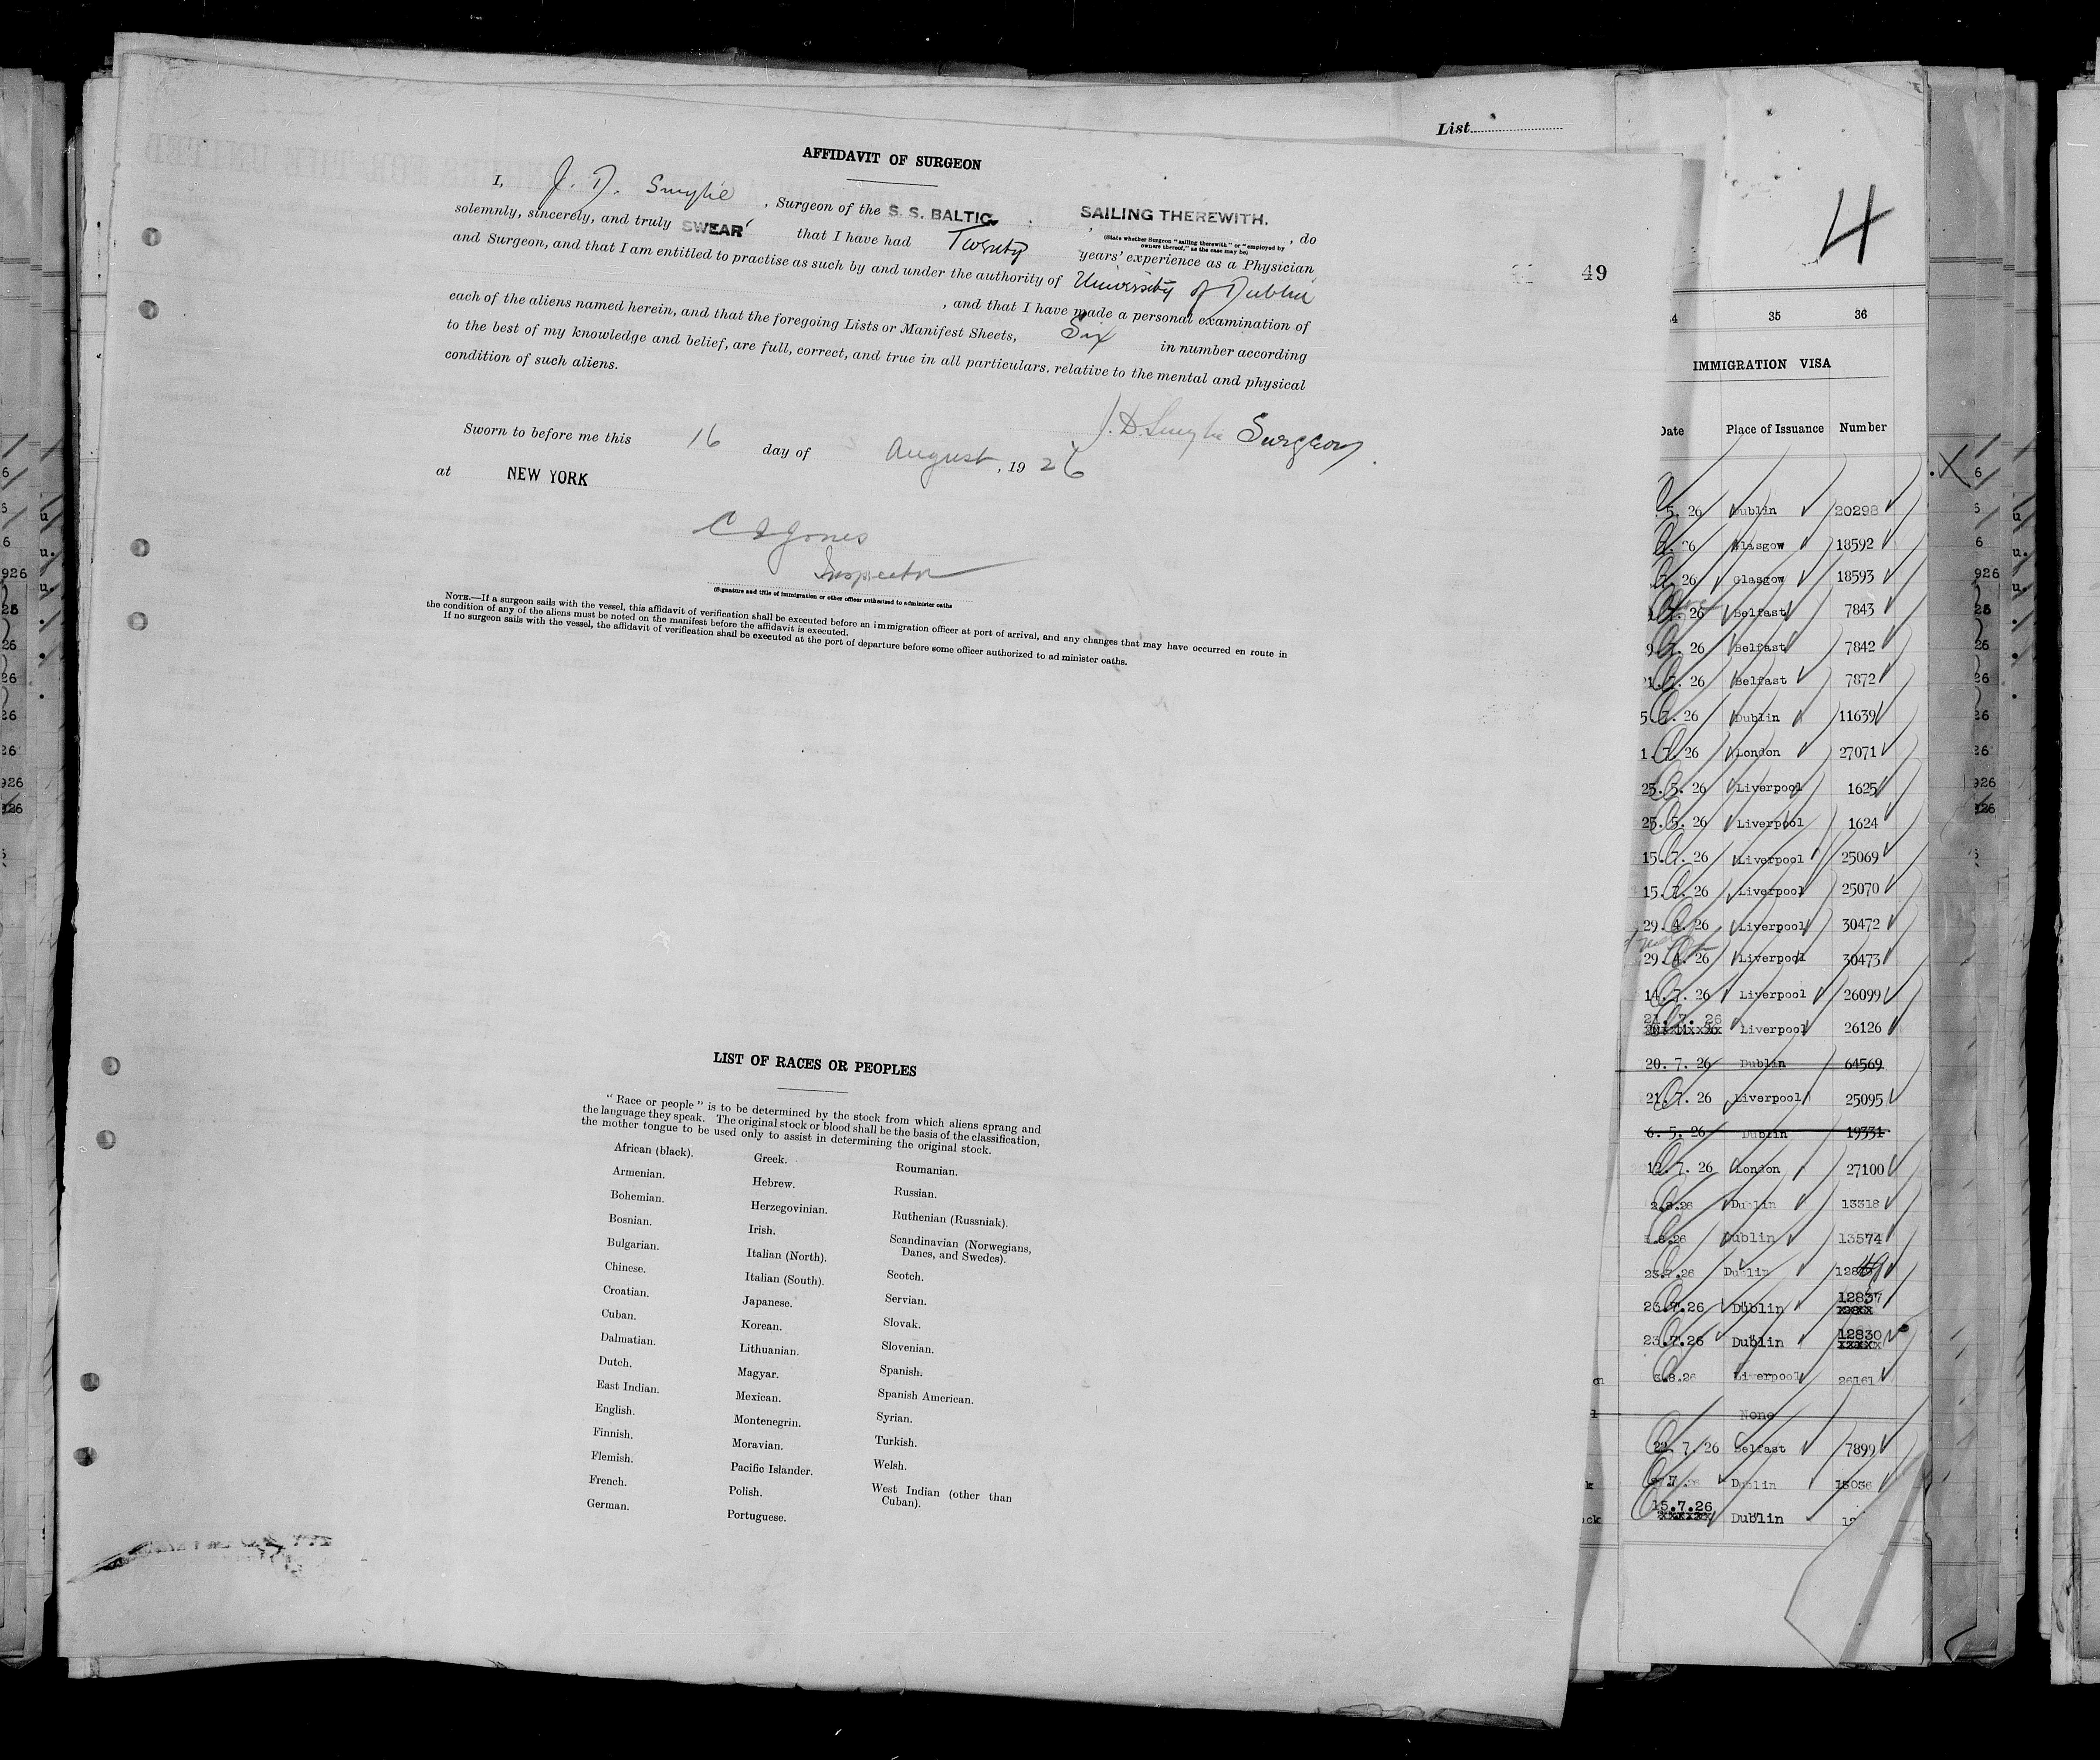 List
AFFIDAVIT OF SURGEON
I, J. D. Smylie , Surgeon of the S. S. BALTIC SAILING THEREWITH. , do
(State whether Surgeon "sailing therewith" or "employed by
owners thereof," as the case may be)
solemnly, sincerely, and truly SWEAR that I have had Twenty years' experience as a Physician
and Surgeon, and that I am entitled to practise as such by and under the authority of University of Dublin
, and that I have made a personal examination of
each of the aliens named herein, and that the foregoing Lists or Manifest Sheets, Six in number according
to the best of my knowledge and belief, are full, correct, and true in all particulars, relative to the mental and physical
condition of such aliens.
J. D. Smylie Surgeon.
Sworn to before me this 16 day of August, 1926
at NEW YORK
Jones
Inspector
(Signature and title of immigration or other officer authorized to administer oaths
NOTE.—If a surgeon sails with the vessel, this affidavit of verification shall be executed before an immigration officer at port of arrival, and any changes that may have occurred en route in
the condition of any of the aliens must be noted on the manifest before the affidavit is executed.
If no surgeon sails with the vessel, the affidavit of verification shall be executed at the port of departure before some officer authorized to administer oaths.
LIST OF RACES OR PEOPLES
" Race or people " is to be determined by the stock from which aliens sprang and
the language they speak. The original stock or blood shall be the basis of the classification,
the mother tongue to be used only to assist in determining the original stock.
African (black).
Armenian.
Bohemian.
Bosnian.
Bulgarian.
Chinese.
Croatian.
Cuban.
Dalmatian.
Dutch.
East Indian.
English.
Finnish.
Flemish.
French.
German.
Greek.
Hebrew.
Herzegovinian.
Irish.
Italian (North).
Italian (South).
Japanese.
Korean.
Lithuanian.
Magyar.
Mexican.
Montenegrin.
Moravian.
Pacific Islander.
Polish.
Portuguese.
Roumanian.
Russian.
Ruthenian (Russniak).
Scandinavian (Norwegians,
Danes, and Swedes).
Scotch.
Servian.
Slovak.
Slovenian.
Spanish.
Spanish American.
Syrian.
Turkish.
Welsh.
West Indian (other than
Cuban).
49
4
35 36
IMMIGRATION VISA
Date Place of Issuance Number
5. 26 Dublin 20298
26 Glasgow 18592
26 Glasgow 18593
26 Belfast 7843
26 Belfast 7842
7. 26 Belfast 7872
26 Dublin 11639
26 London 27071
25. 5. 26 Liverpool 1625
25. 5. 26 Liverpool 1624
15. 7. 26 Liverpool 25069
15. 7. 26 Liverpool 25070
29. 4. 26 Liverpool 30472
29. 4. 26 Liverpool 30473
14. 7. 26 Liverpool 26099
21. 7. 26 Liverpool 26126
20. 7. 26 Dublin 64569
21. 7. 26 Liverpool 25095
6. 5. 26 Dublin 19331
12. 7. 26 London 27100
2.8.26 Dublin 13318
.8.26 Dublin 13574
23.7.26 Dublin
23.7.26 Dublin 12837
23.7.26 Dublin 12830
3.8.26 Liverpool 26161
None
22. 7. 26 Belfast 7899
7.26 Dublin 13036
15.7.26 Dublin